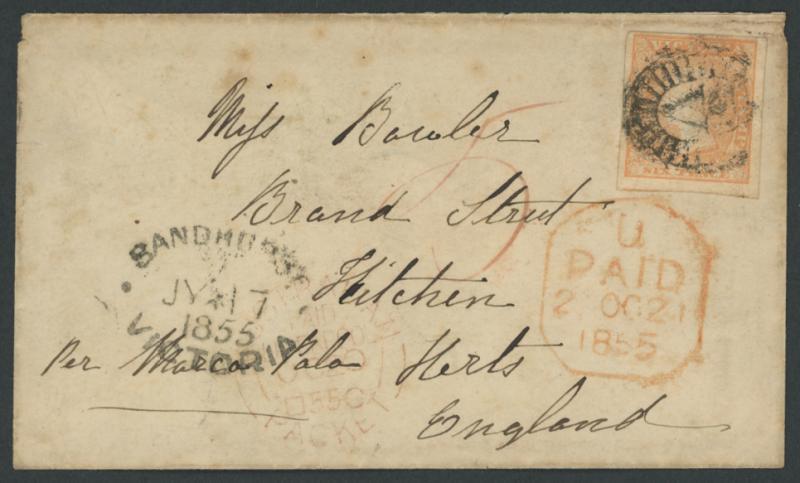 Miss Bowler
Brand Street
Hitchin
Herts
England
Per Marco Polo
SANDHURST
JY 17
1855
VICTORIA
U
PAID
2 OC 21
1855
SIX
V
PACKET